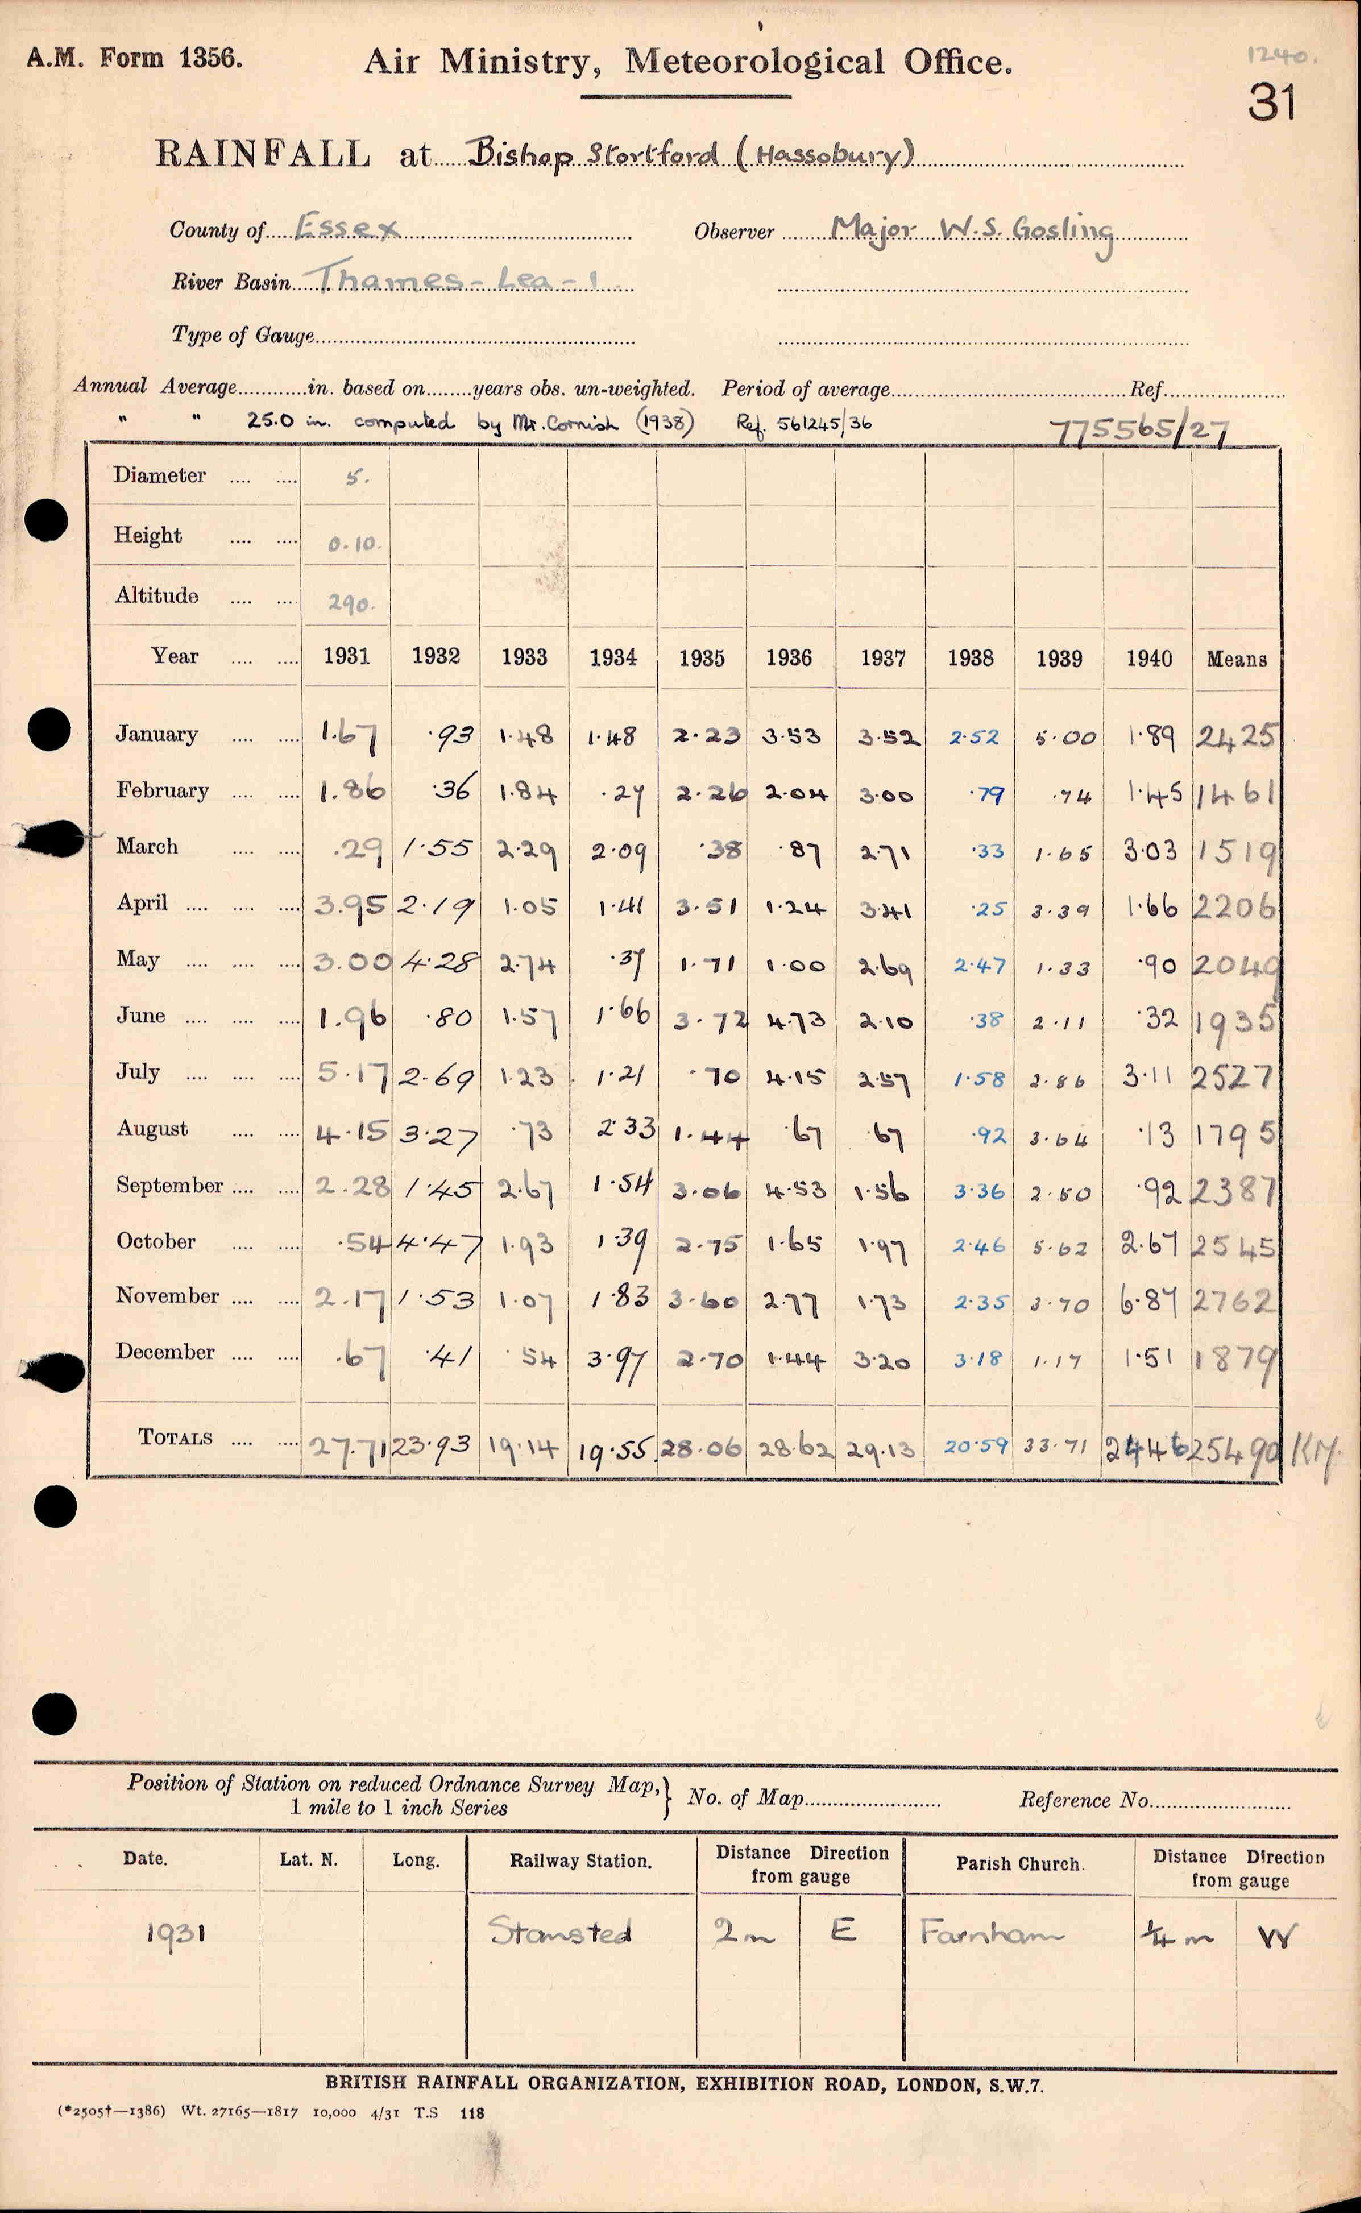 A.M. Form 1356.
Air Ministry, Meteorological Office.
1240.
31
RAINFALL at Bishop Stortford (Hassobury)
County of Essex Observer Major W.S. Gosling
River Basin Thames - Lea - 1
Type of Gauge
Annual Average in. based on years obs. un-weighted. Period of average Ref.
" " 25.0 in. computed by Mr. Cornish (1938) Ref. 561245/36 775565/27
Diameter 5.
Height 0.10.
Altitude 290.
Year 1931 1932 1933 1934 1935 1936 1937 1938 1939 1940 Means
January 1.67 .93 1.48 1.48 2.23 3.53 3.52 2.52 5.00 1.89 2425
February 1.86 .36 1.84 .27 2.26 2.04 3.00 .79 .74 1.45 1461
March .29 1.55 2.29 2.09 .38 .87 2.71 .33 1.65 3.03 1519
April 3.95 2.19 1.05 1.41 3.51 1.24 3.41 .25 3.39 1.66 2206
May 3.00 4.28 2.74 .37 1.71 1.00 2.69 2.47 1.33 .90 2049
June 1.96 .80 1.57 1.66 3.72 4.73 2.10 .38 2.11 .32 1935
July 5.17 2.69 1.23 1.21 .70 4.15 2.57 1.58 2.86 3.11 2527
August 4.15 3.27 .73 2.33 1.44 .67 .67 .92 3.64 .13 1795
September 2.28 1.45 2.67 1.54 3.06 4.53 1.56 3.36 2.50 .92 2387
October .54 4.47 1.93 1.39 2.75 1.65 1.97 2.46 5.62 2.67 2545
November 2.17 1.53 1.07 1.83 3.60 2.77 1.73 2.35 3.70 6.87 2762
December .67 .41 .54 3.97 2.70 1.44 3.20 3.18 1.17 1.51 1879
TOTALS 27.71 23.93 19.14 19.55 28.06 28.62 29.13 20.59 33.71 24.46 25490
Position of Station on reduced Ordnance Survey Map, } No. of Map Reference No.
1 mile to 1 inch Series
Date. Lat. N. Long. Railway Station. Distance Direction from gauge Parish Church. Distance Direction from gauge
1931 Stansted 2m E Farnham 1/4 m W
BRITISH RAINFALL ORGANIZATION, EXHIBITION ROAD, LONDON, S.W.7.
(*2505†—1386) Wt. 27165—1817 10,000 4/31 T.S 118